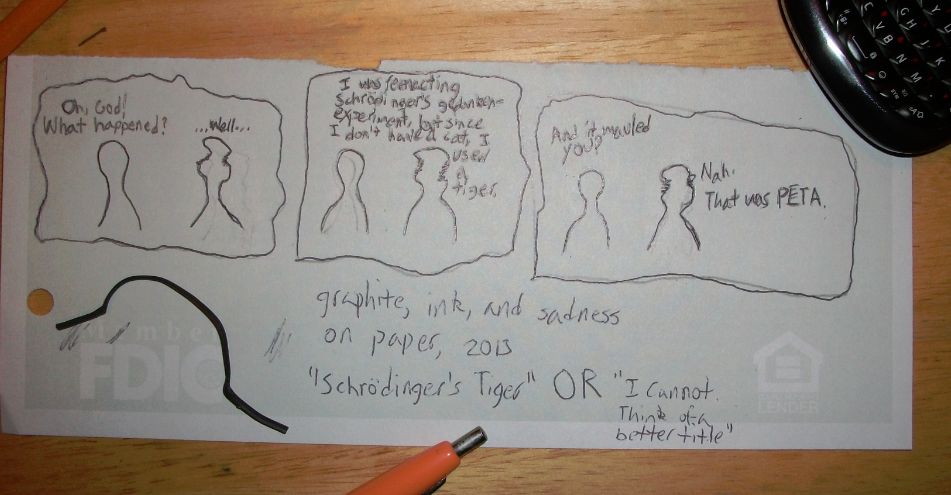 Oh, God!
What happened?
...Well...
I was reenacting
Schrödinger's gedanken-
experiment, but since
I don't have a cat, I
used
a
tiger.
And it mauled
you?
Nah.
That was PETA.
graphite, ink, and sadness
on paper, 2013
"Schrödinger's Tiger" OR "I Cannot
Think of a
better title"
Member
FDIC
LENDER